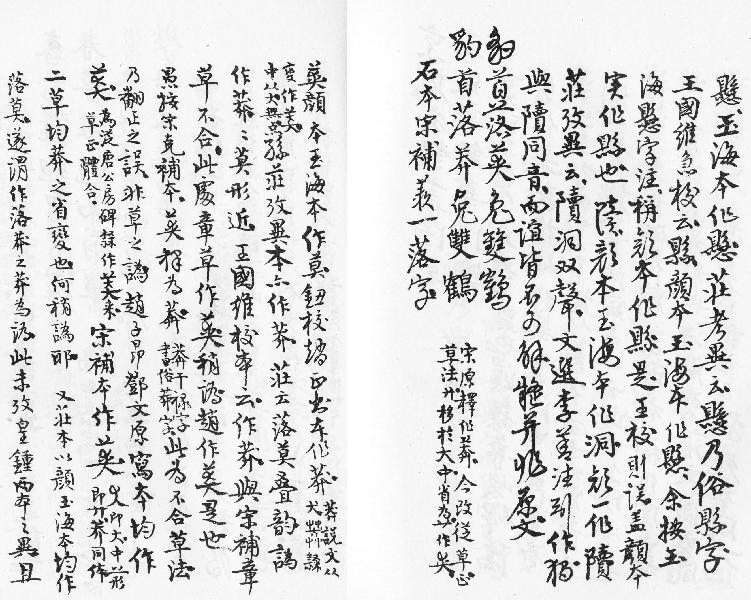 懸、玉海本作懸、莊考異云懸乃俗縣字
王國維急校云縣顏本玉海本作懸、余按玉
海懸字注稱顏本作縣是王校則誤、蓋顏本
实作縣也、隤、顏本玉海本作洞、顏一作隤
莊攷異云隤洞双聲、文選李善注引作
與隤同音、而誼皆不可解、疑并非原文
豹首落莽兔雙鶴
豹首落莽兔雙鶴
宋原釋作莽、今改從草正
草法廾移於大中省為
石本宋補义一落字
英、顏本玉海本作莫、鈕校趙正书本作莽、莽说文从
犬茻隸
變作
中从大
孫莊攷異本亦作莽、莊云落莫疊韵、譌
作莽、莽莫形近、王國維校本云作莽、與宋補章
草不合、此處章草作英稍譌、趙作英是也
愚按宋克補本、英釋为莽、莽干禄字
書俗莽字、此为不合草法
乃翻正之误、非草之譌、趙子昂鄧文原寫本均作
英、為漢唐公房碑隸作
草正體合、宋補本作英、即大中
即廾莽同作
二草均莽之省變也、何稍譌耶、又莊本以顏玉海本均作
落莫、遂謂作落莽之莽为譌、此未攷皇鍾兩本之異、且